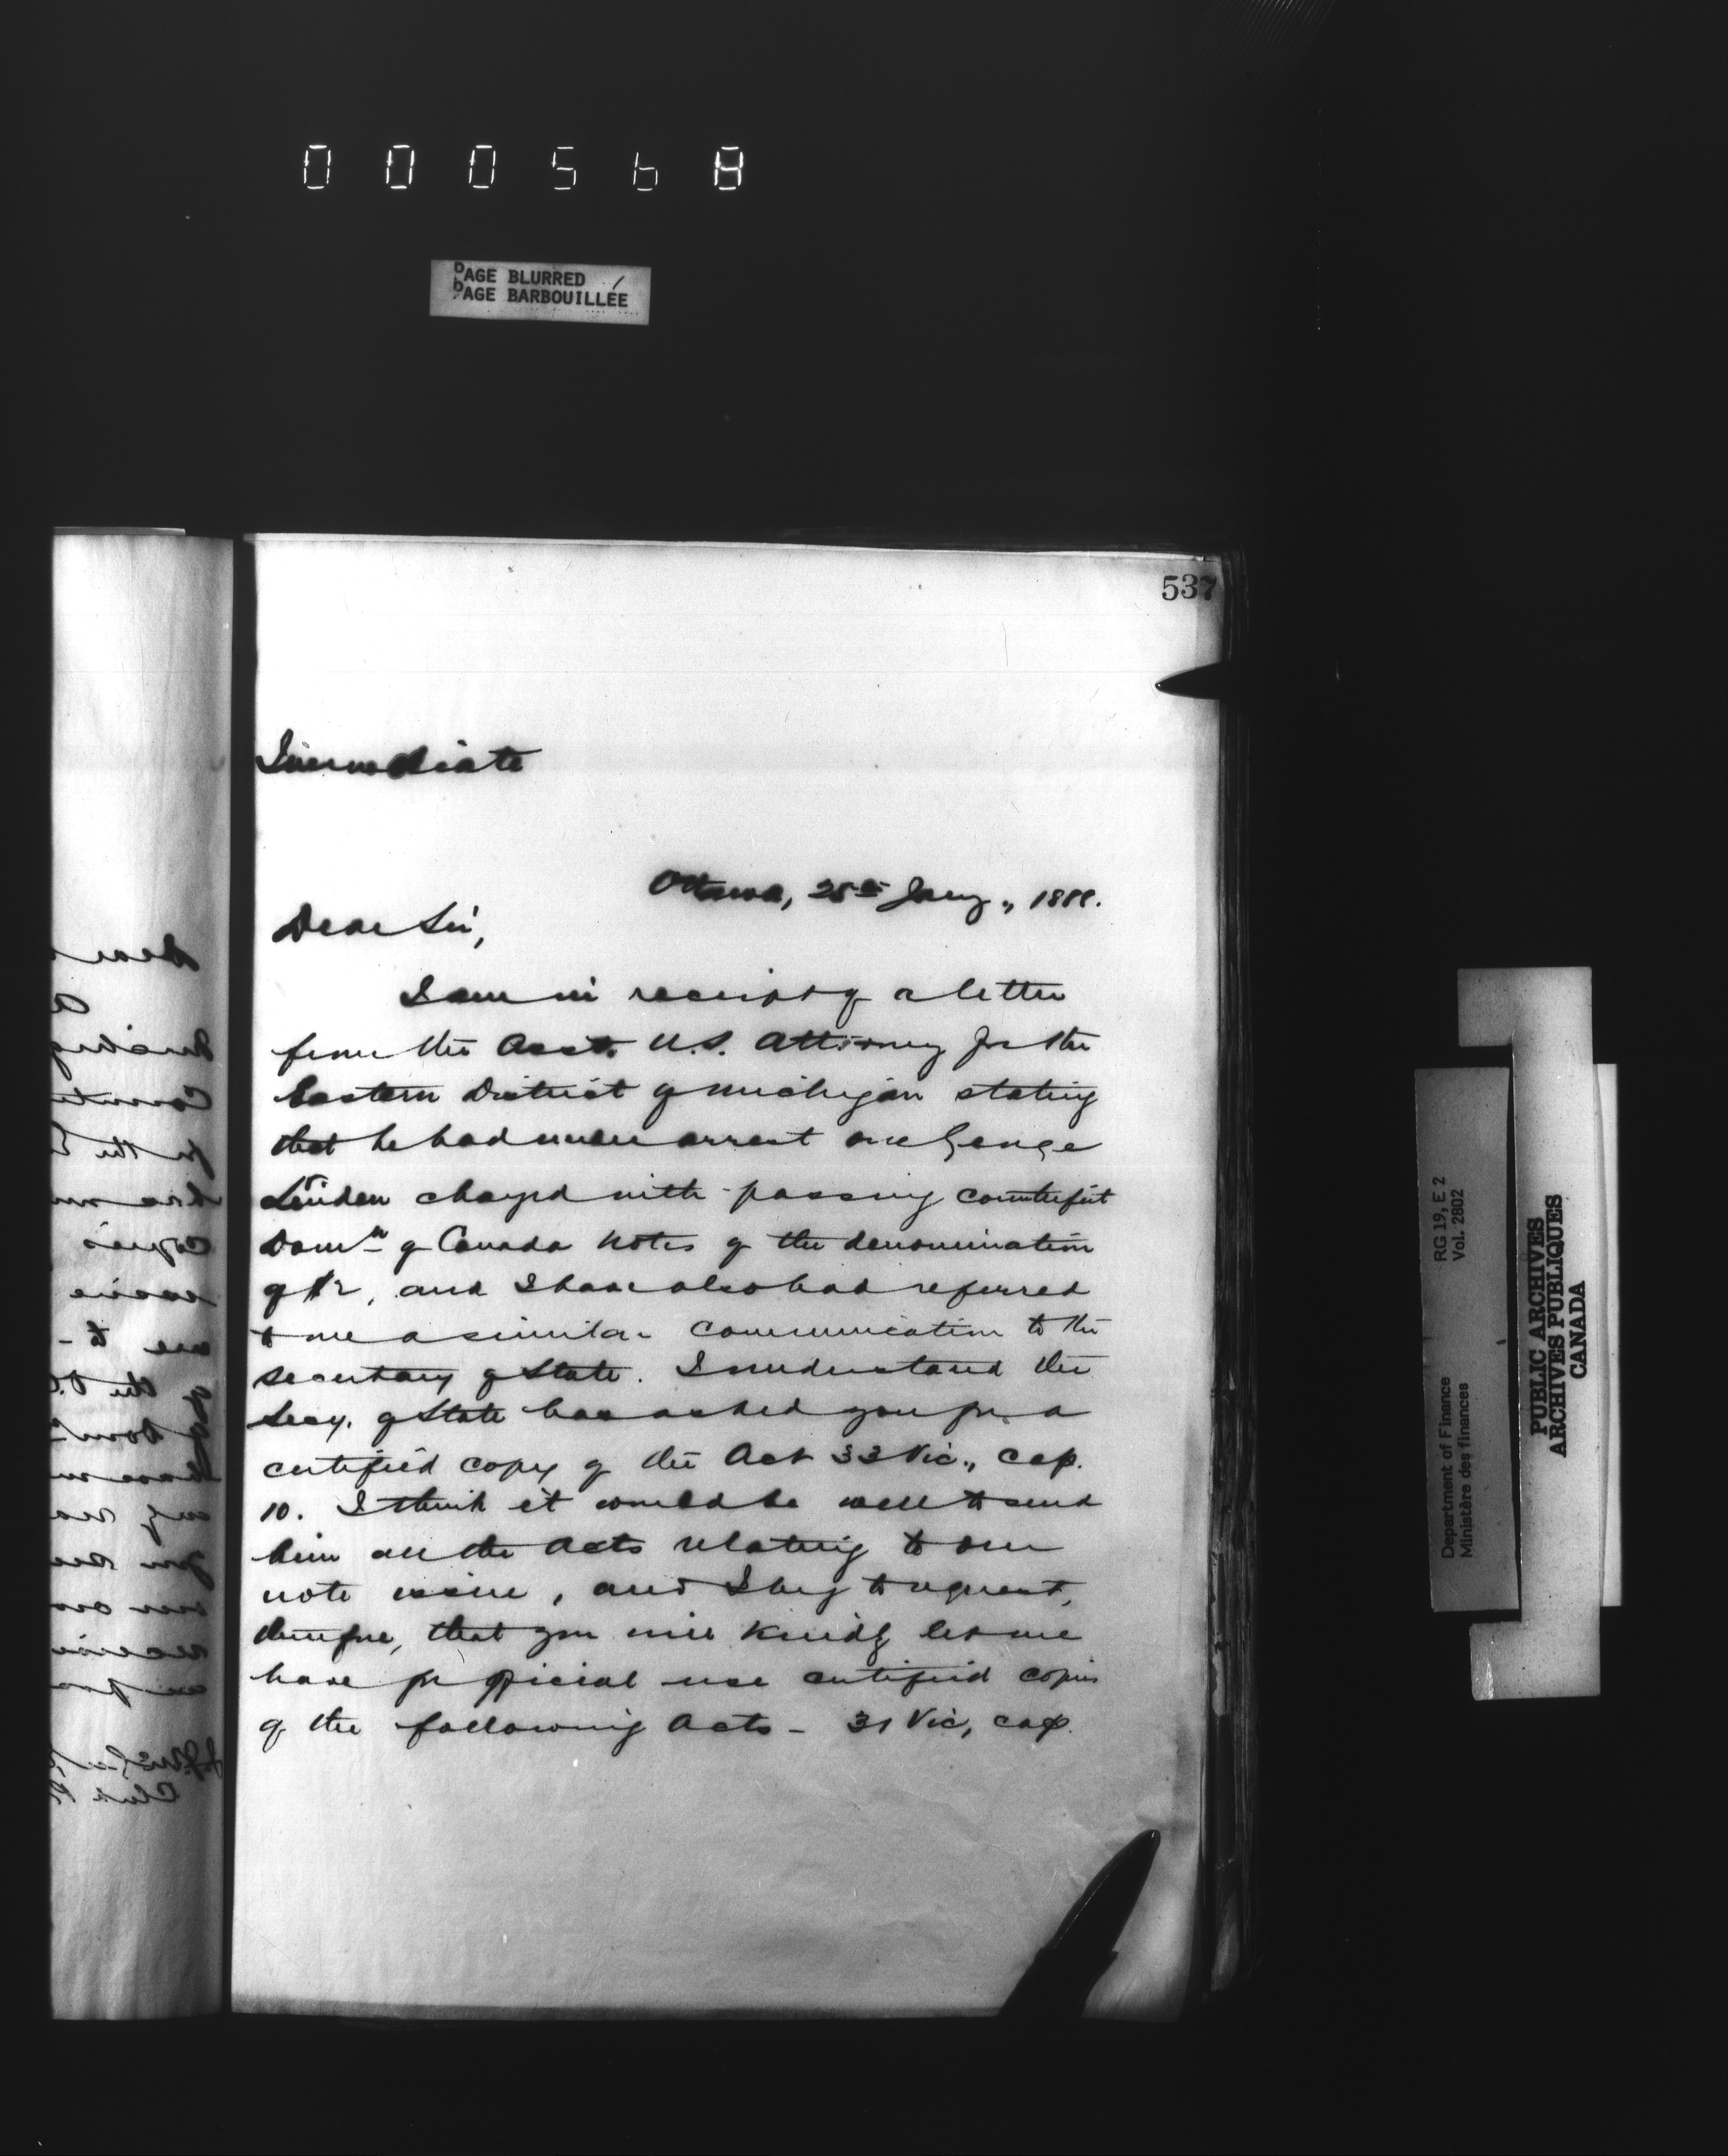 000568
PAGE BLURRED
PAGE BARBOUILLÉE
537
Immediate
Ottawa, 25th Jany., 1888.
Dear Sir,
I am in receipt of a letter
from the Asst. U.S. Attorney for the
Eastern District of Michigan stating
that he had under arrest one George
charged with passing counterfeit
Domn of Canada notes of the denomination
of $2, and I have also had referred
to me a similar communication to the
Secretary of State. I understand the
Secy. of State has asked you for a
certified copy of the Act 33 Vic., cap.
10. I think it would be well to send
him all the Acts relating to our
note issue, and I beg to request,
therefore, that you will kindly let me
have for official use certified copies
of the following Acts - 31 Vic, cap.
RG 19, E 2
Vol. 2802
Department of Finance
Ministère des finances
PUBLIC ARCHIVES
ARCHIVES PUBLIQUES
CANADA